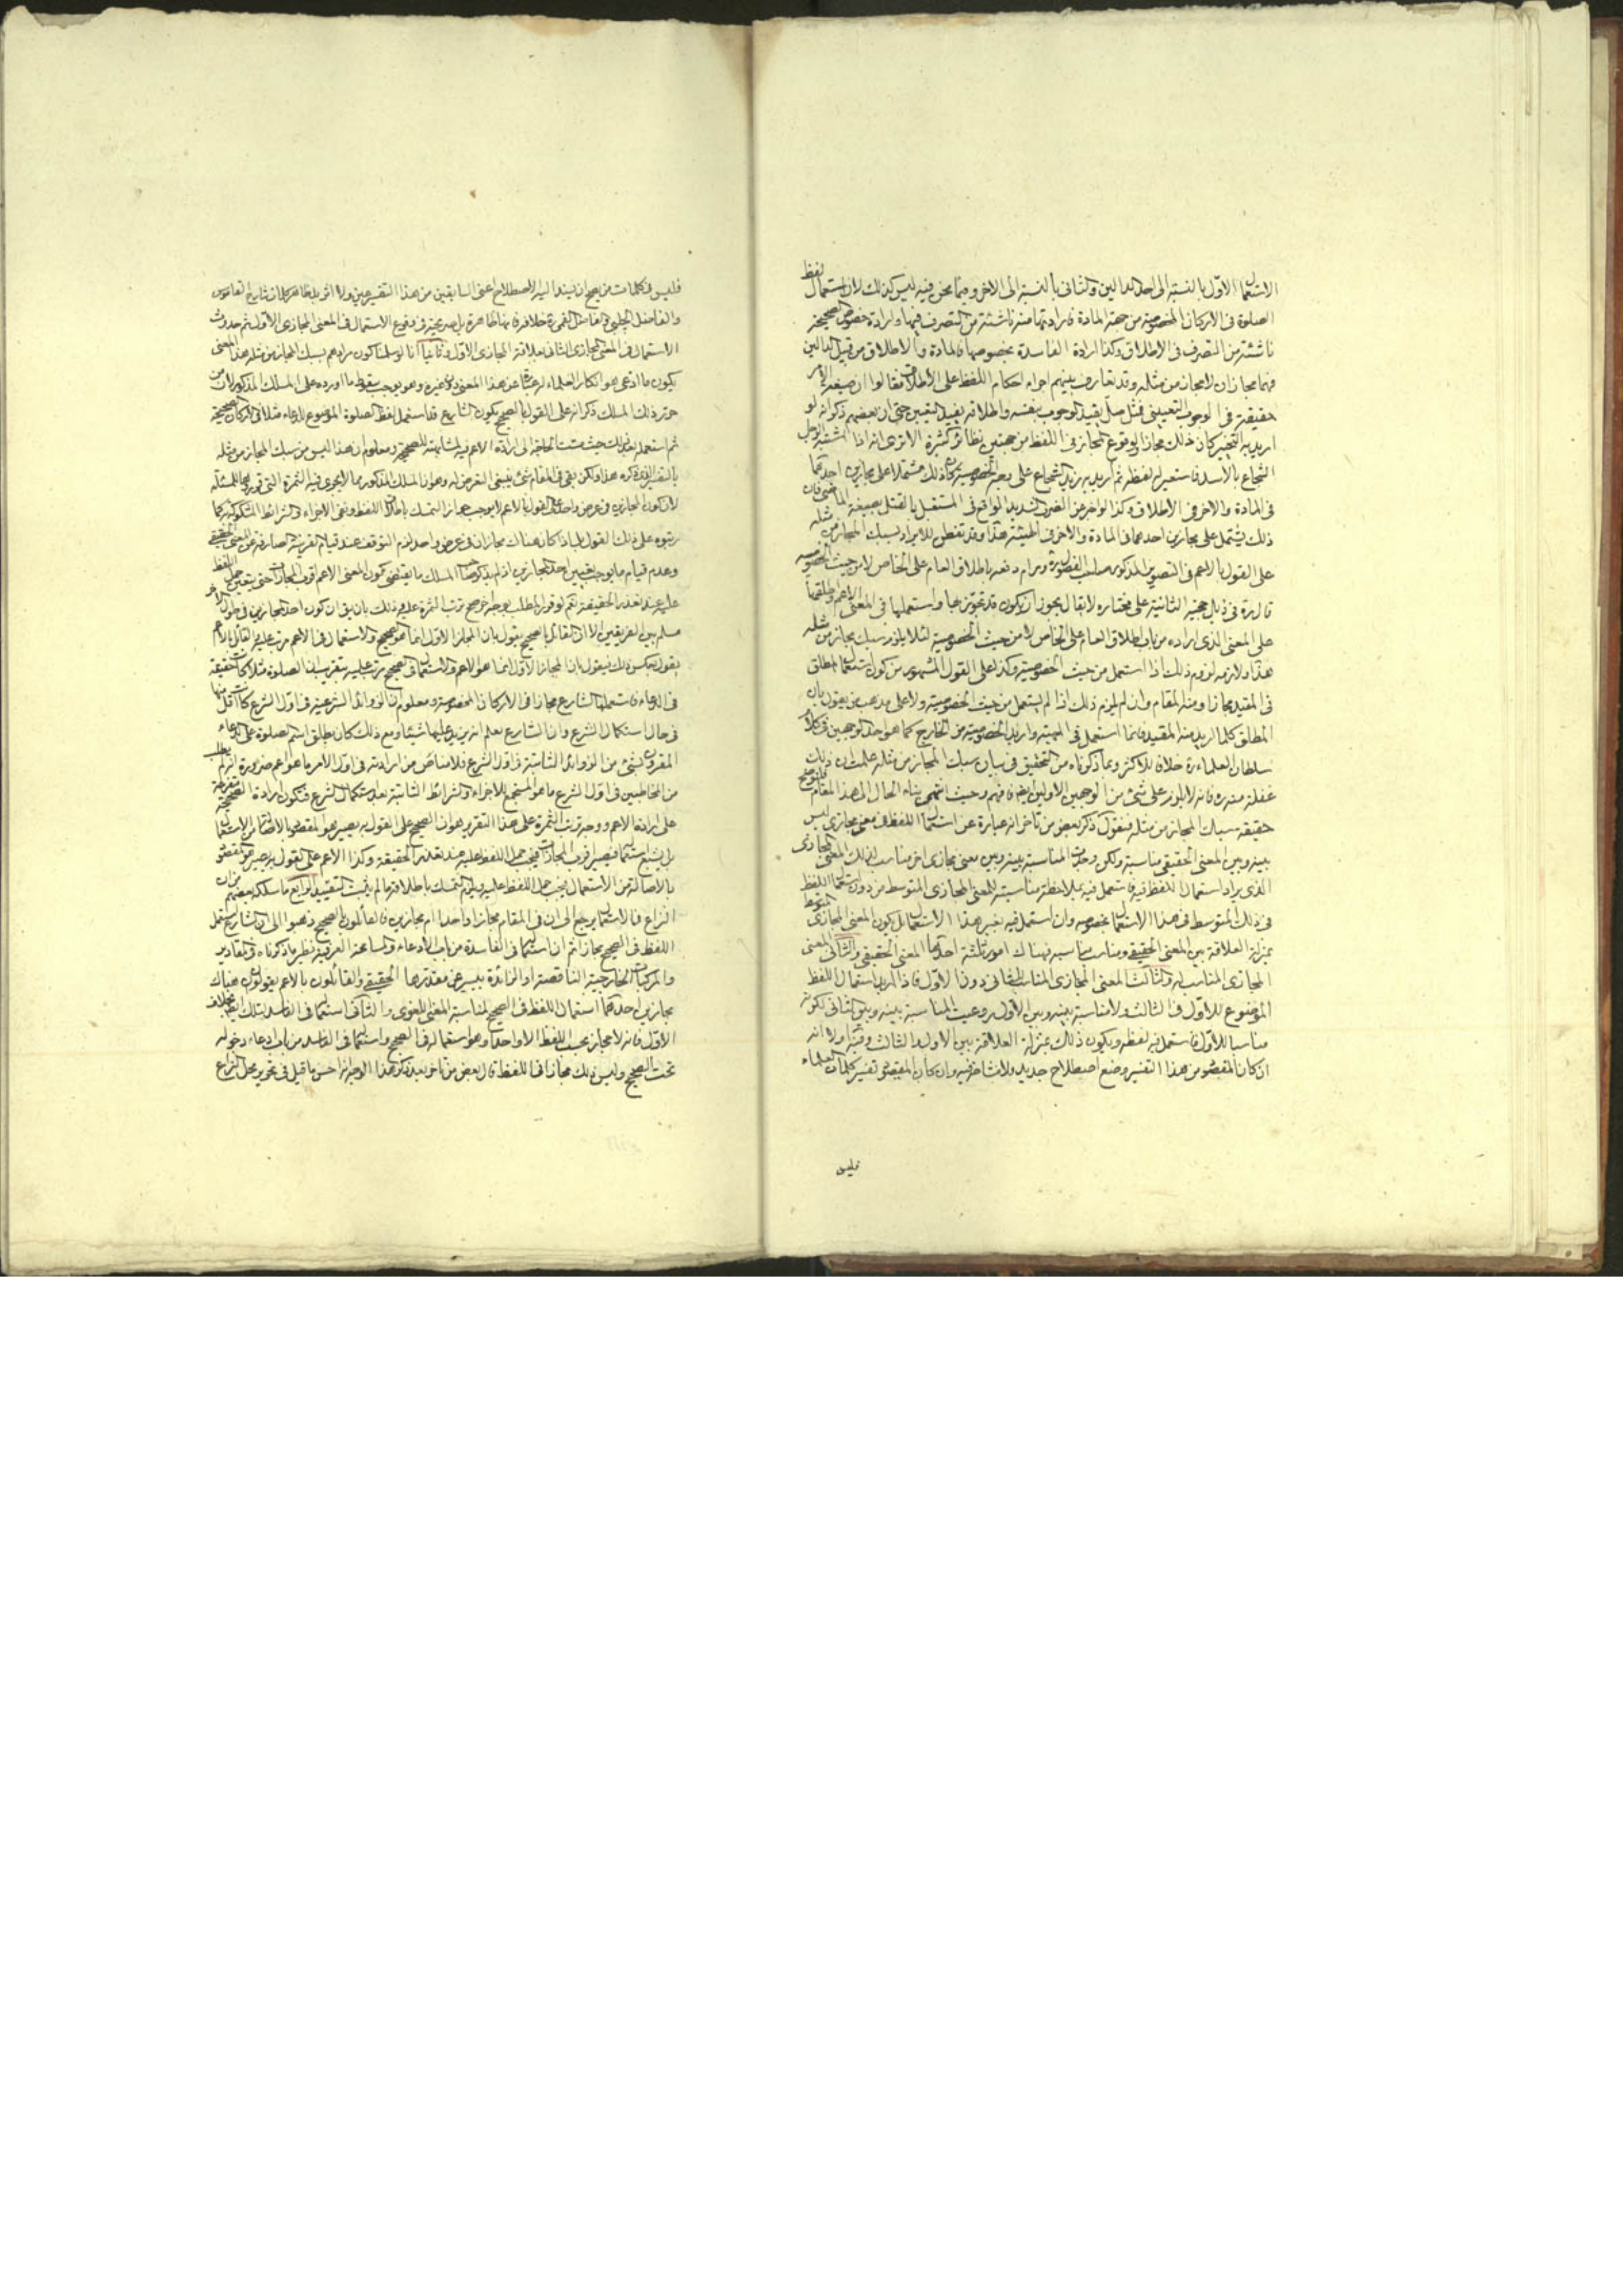 الاستعمال الاول بالنسبة الى احد الدالين والثانى بالنسبة الى الاخر وفيما نحن فيه ليس كذلك لان استعمال لفظ
الصلوة فى الاركان المخصوصة من جهة المادة فارادتها منه ناشئة من التصرف فيها وارادة خصوص الصحيحة
ناشئة من التصرف فى الاطلاق وكذا ارادة الفاسدة بخصوصها فالمادة والاطلاق من قبيل الدالين
فهما مجازان لا مجاز من مثله وقد تعارف بينهم اجراء احكام اللفظ على الاطلاق فقالوا ان صيغة الامر
حقيقة فى الوجوب التعيينى فمثل صل يفيد الوجوب بنفسه واطلاقه يفيد التعيين حتى ان بعضهم ذكر انه لو
اريد به التخيير كان ذلك مجازا ووقوع المجاز فى اللفظ من جهتين نظائره كثيرة الا ترى انه اذا اشتبه الرجل
الشجاع بالاسد فاستعير له لفظه ثم اريد به زيد الشجاع على وجه الخصوصية كان ذلك مشتملا على مجازين احدهما
فى المادة والاخر فى الاطلاق وكذا لو اخبر عن الضرب الشديد الواقع فى المستقبل بالقتل بصيغة الماضى فان
ذلك يشتمل على مجازين احدهما فى المادة والاخر فى الهيئة هذا وقد تفطن للايراد بسبك المجاز من مثله
على القول بالاعم فى التصوير المذكور صاحب الفصول ره ورام دفعه باطلاق العام على الخاص لا من حيث الخصوصية
قال ره فى ذيل حجية الثانية على مختاره لا يقال يجوز ان يكون قد تجوز بها واستعملها فى المعنى الاعم واطلقها
على المعنى الذى اراده من باب اطلاق العام على الخاص لا من حيث الخصوصية لئلا يلزم سبك مجاز من مثله
هذا ولازمه لزوم ذلك اذا استعمل من حيث الخصوصية وكذا على القول المشهور من كون استعمال المطلق
فى المقيد مجازا ومنه المقام وان لم يلزم ذلك اذا لم يستعمل من حيث الخصوصية ولا على مذهب من يقول بان
المطلق كلما اريد منه المقيد فانما استعمل فى المهية واريد الخصوصية من الخارج كما هو احد الوجهين فى كلام
سلطان العلماء ره خلافا للاكثر وبما ذكرناه من التحقيق فى بيان سبك المجاز من مثله علمت ان ذلك
غفلة منه ره فانه لا يلزم على شئ من الوجهين الاولين ايضا فافهم وحيث انتهى بناء الحال الى هذا المقام فلنوضح
حقيقة سبك المجاز من مثله فنقول ذكر بعض من تاخر انه عبارة عن استعمال اللفظ فى معنى مجازى ليس
بينه وبين المعنى الحقيقى مناسبة ولكن وجدت المناسبة بينه وبين معنى مجازى اخر مناسب لذلك المعنى المجازى
الذى يراد استعمال اللفظ فيه فاستعمل فيه بملاحظة مناسبته للمعنى المجازى المتوسط من دون استعمال اللفظ
فى ذلك المتوسط فى هذا الاستعمال بخصوصه وان استعمل فيه بغير هذا الاستعمال بل يكون المعنى المجازى المتوسط
بمنزلة العلاقة بين المعنى الحقيقى ومناسب مناسبه فهناك امور ثلثة احدها المعنى الحقيقى والثانى المعنى
المجازى المناسب له والثالث المعنى المجازى المناسب للثانى دون الاول فاذا اريد استعمال اللفظ
الموضوع للاول فى الثالث ولا مناسبة بينه وبين الاول روعيت المناسبة بينه وبين الثانى لكونه
مناسبا للاول فاستعمل فيه لفظه ويكون ذلك بمنزلة العلاقة بين الاول والثالث وفيه اولا انه
ان كان المقصود من هذا التفسير وضع اصطلاح جديد ولا مشاحة فيه وان كان المقصود تفسير كلمات العلماء
فليس
فليس فى كلمات من يصح ان يسند اليه الاصطلاح اعنى السابقين من هذا التفسير عين ولا اثر بل ظاهر كلمات شارح القاموس
والفاضل الچلبى والفاضل القمى ره خلافه فانها ظاهرة بل صريحة فى وقوع الاستعمال فى المعنى المجازى الاول ثم حدوث
الاستعمال فى المعنى المجازى الثانى بعلاقة المجازى الاول وثانيا انا لو سلمنا كون مرادهم بسبك المجاز من مثله هذا المعنى
يكون ما ادعى هو انكار العلماء له عبثا عن هذا المعنى دون غيره وهو يوجب سقوط ما اورده على المسلك المذكور لان من
حرر ذلك المسلك ذكر انه على القول بالصحيح يكون الشارع قد استعمل لفظ الصلوة الموضوع للدعاء مثلا فى الاركان الصحيحة
ثم استعمله بعد ذلك حيث مست الحاجة الى ارادة الاعم فيه لمشابهته للصحيحة ومعلوم ان هذا ليس من سبك المجاز من مثله
بالتفسير الذى ذكره هذا ولكن بقى فى المقام شئ ينبغى التعرض له وهو ان المسلك المذكور مما لا يجرى فيه الثمرة التى قررت للمسئلة
لان كون المجازين فى عرض واحد على القول بالاعم لا يوجب جواز التمسك باطلاق اللفظ ونفى الاجزاء والشرائط المشكوكة كما
رتبوه على ذلك القول لما اذا كان هناك مجازان فى عرض واحد لزم التوقف عند قيام القرينة الصارفة عن المعنى الحقيقى
وعدم قيام ما يوجب تعيين احد المجازين اذ لم يذكر صاحب المسلك ما يقتضى كون المعنى الاعم اقرب المجازات حتى يتعين حمل اللفظ
عليه عند تعذر الحقيقة نعم لو قرر المطلب بوجه اخر صح ترتب الثمرة عليه وذلك بان يق ان كون احد المجازين فى طول الاخر
مسلم بين الفريقين الا ان القائل بالصحيح يقول بان المجاز الاول انما هو الصحيح والاستعمال فى الاعم مرتب عليه والقائل بالاعم
يقول بعكس ذلك فيقول بان المجاز الاول انما هو الاعم والاستعمال فى الصحيح مرتب عليه بتقريب ان الصلوة مثلا كانت حقيقة
فى الدعاء فاستعملها الشارع مجازا فى الاركان المخصوصة ومعلوم ان الزوائد الشرعية فى اول الشرع كانت اقل منها
فى حال استكمال الشرع وان الشارع يعلم انه يزيد عليها شيئا ومع ذلك كان يطلق اسم الصلوة على الدعاء
المقرون بشئ من الزوائد الثابتة فى اول الشرع فلا مناص من ارادته فى اول الامر ما هو اعم ضرورة انه لم يطلب
من المخاطبين فى اول الشرع ما هو المستجمع للاجزاء والشرائط الثابتة بعد استكمال الشرع فتكون ارادة الصحيحة متفرعة
على ارادة الاعم ووجه ترتب الثمرة على هذا التقرير هو ان الصحيح على القول به يصير هو المقصود بالاصالة من الاستعمال
بل يشيع استعماله فيصير اقرب المجازات فيجب حمل اللفظ عليه عند تعذر الحقيقة وكذا الاعم على القول به يصير هو المقصود
بالاصالة من الاستعمال فيجب حمل اللفظ عليه ويلزم التمسك باطلاقه ما لم يثبت التقييد الرابع ما سلكه بعضهم من ان
النزاع فى الاستعمال يرجع الى ان فى المقام مجازا واحدا ام مجازين فالقائلون بالصحيح ذهبوا الى ان الشارع استعمل
اللفظ فى الصحيح مجازا ثم ان استعماله فى الفاسدة من باب الادعاء والمسامحة العرفية نظير ما ذكرناه فى المقادير
والمركبات الخارجية الناقصة او الزائدة بيسير عن مقدرها الحقيقى والقائلون بالاعم يقولون هناك
مجازين احدهما استعمال اللفظ فى الصحيح لمناسبة المعنى اللغوى والثانى استعماله فى الفاسد بتلك العلاقة بخلاف
الاول فانه لا مجاز بحسب اللفظ الا واحدا وهو استعماله فى الصحيح واستعماله فى الفاسد من باب ادعاء دخوله
تحت الصحيح وليس ذلك مجازا فى اللفظ قال بعض من تاخر بعد ذكر هذا الوجه انه احسن ما قيل فى تحرير محل النزاع